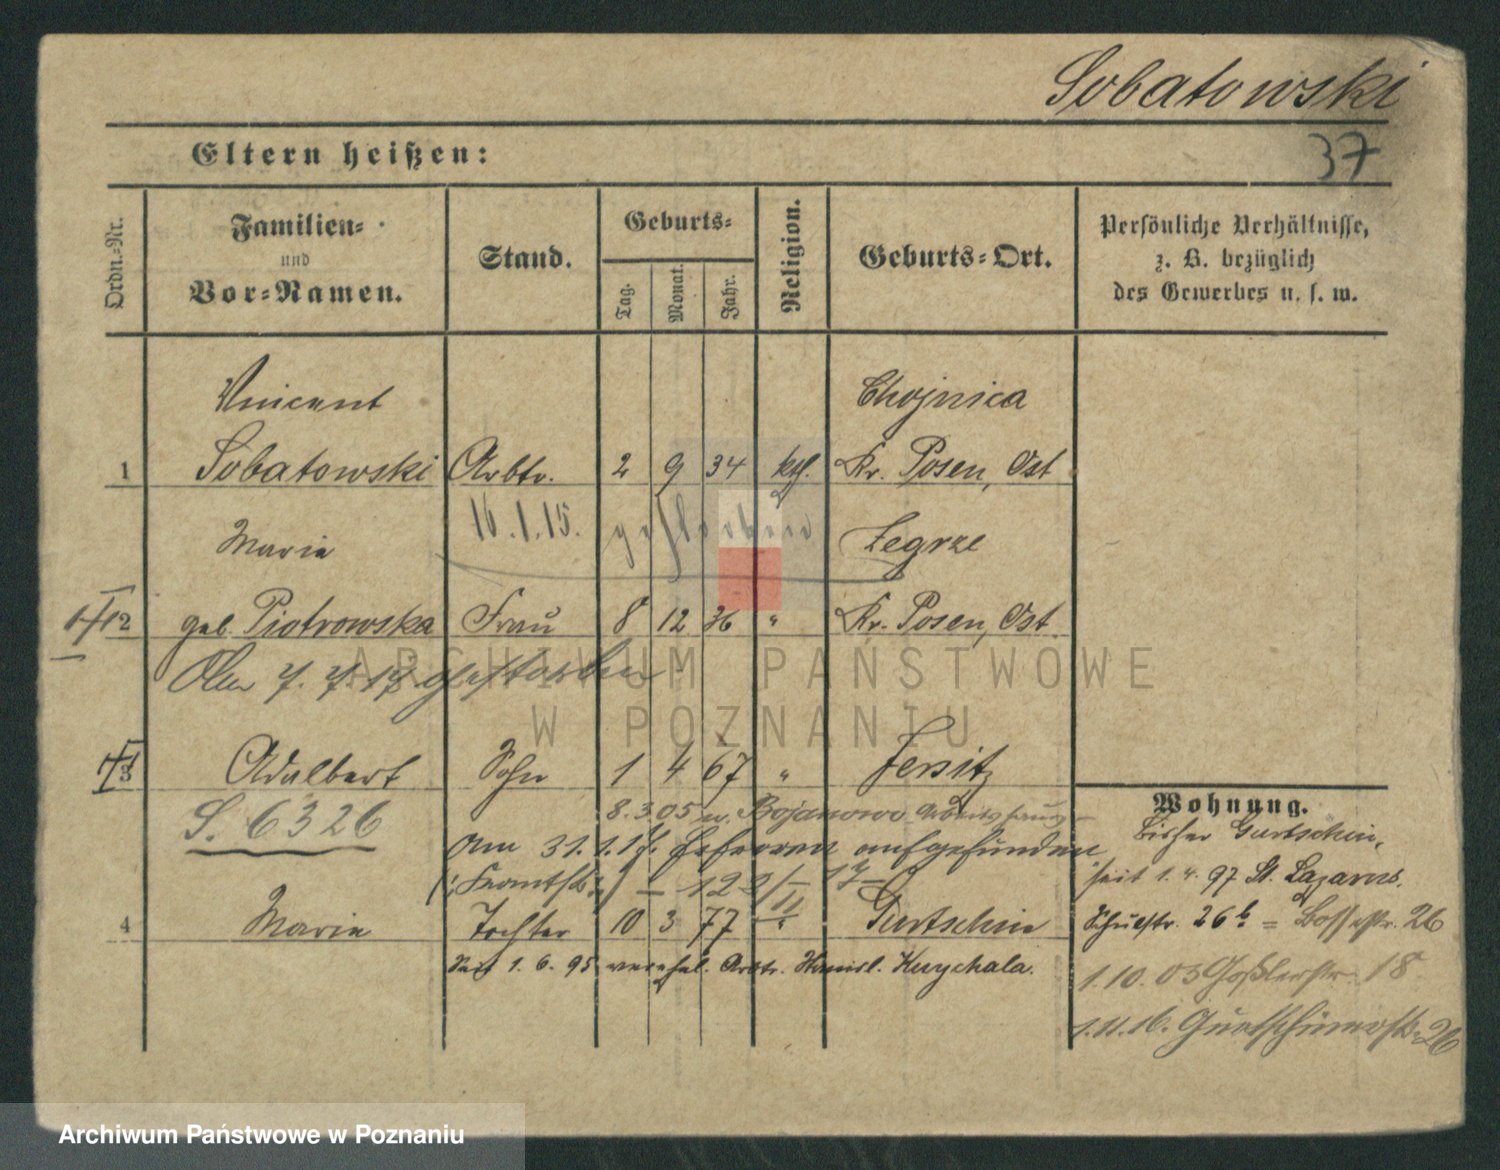 Sobatowski
37
Eltern heißen:
Ordn.=Nr.
Familien=
und
Vor=Namen.
Stand.
Geburts=
Tag.
Monat.
Jahr.
Religion.
Geburts=Ort.
Persönliche Verhältnisse,
z. B. bezüglich
des Gewerbes u. s. w.
Vincent
Chojnica
1 Sobatowski Arbtr. 2 9 34 ktl. Kr. Posen, Ost
16.1.15. gestorben
Maria
Zegrze
2 geb. Piotrowska Frau 8 12 36 " Kr. Posen, Ost
Am 7. 7. 17. gestorben
3 Adalbert Sohn 1 4 67 " Jersitz
S. 6326
8.3.05 n. Bojanowo Arbeitshaus
Am 31.1.17. erfroren aufgefunden
4 Maria Tochter 10 3 77 " Gurtschin
Seit 1.6.95 verehel. Arbtr.
Wohnung.
Bisher Gurtschin,
seit 1.4.97 St. Lazarus.
26b = 26
1.10.03 Goßlerstr. 18
1.11.16. 26
ARCHIWUM PAŃSTWOWE
W POZNANIU
Archiwum Państwowe w Poznaniu